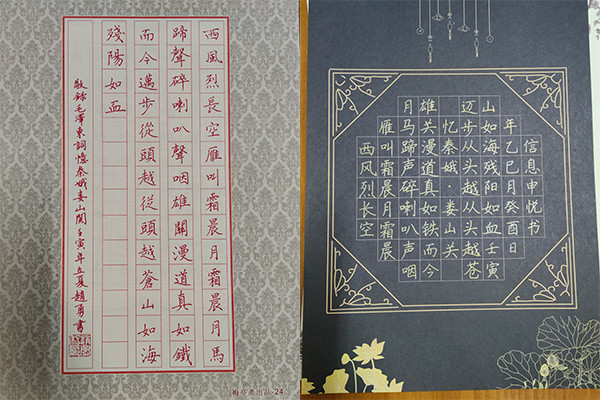 西風烈長空雁叫霜晨月霜晨月馬
蹄聲碎喇叭聲咽雄關漫道真如鐵
而今邁步從頭越從頭越蒼山如海
殘陽如血
敬錄毛澤東詞憶秦娥婁山關壬寅年立夏趙書
出品-24
西风烈长空
雁叫霜晨月霜晨
月马蹄声碎喇叭声咽
雄关漫道真如铁而今
忆秦娥·娄山关
迈步从头越从头越苍
山如海残阳如血壬寅
年乙巳月癸酉日
信息申悦书